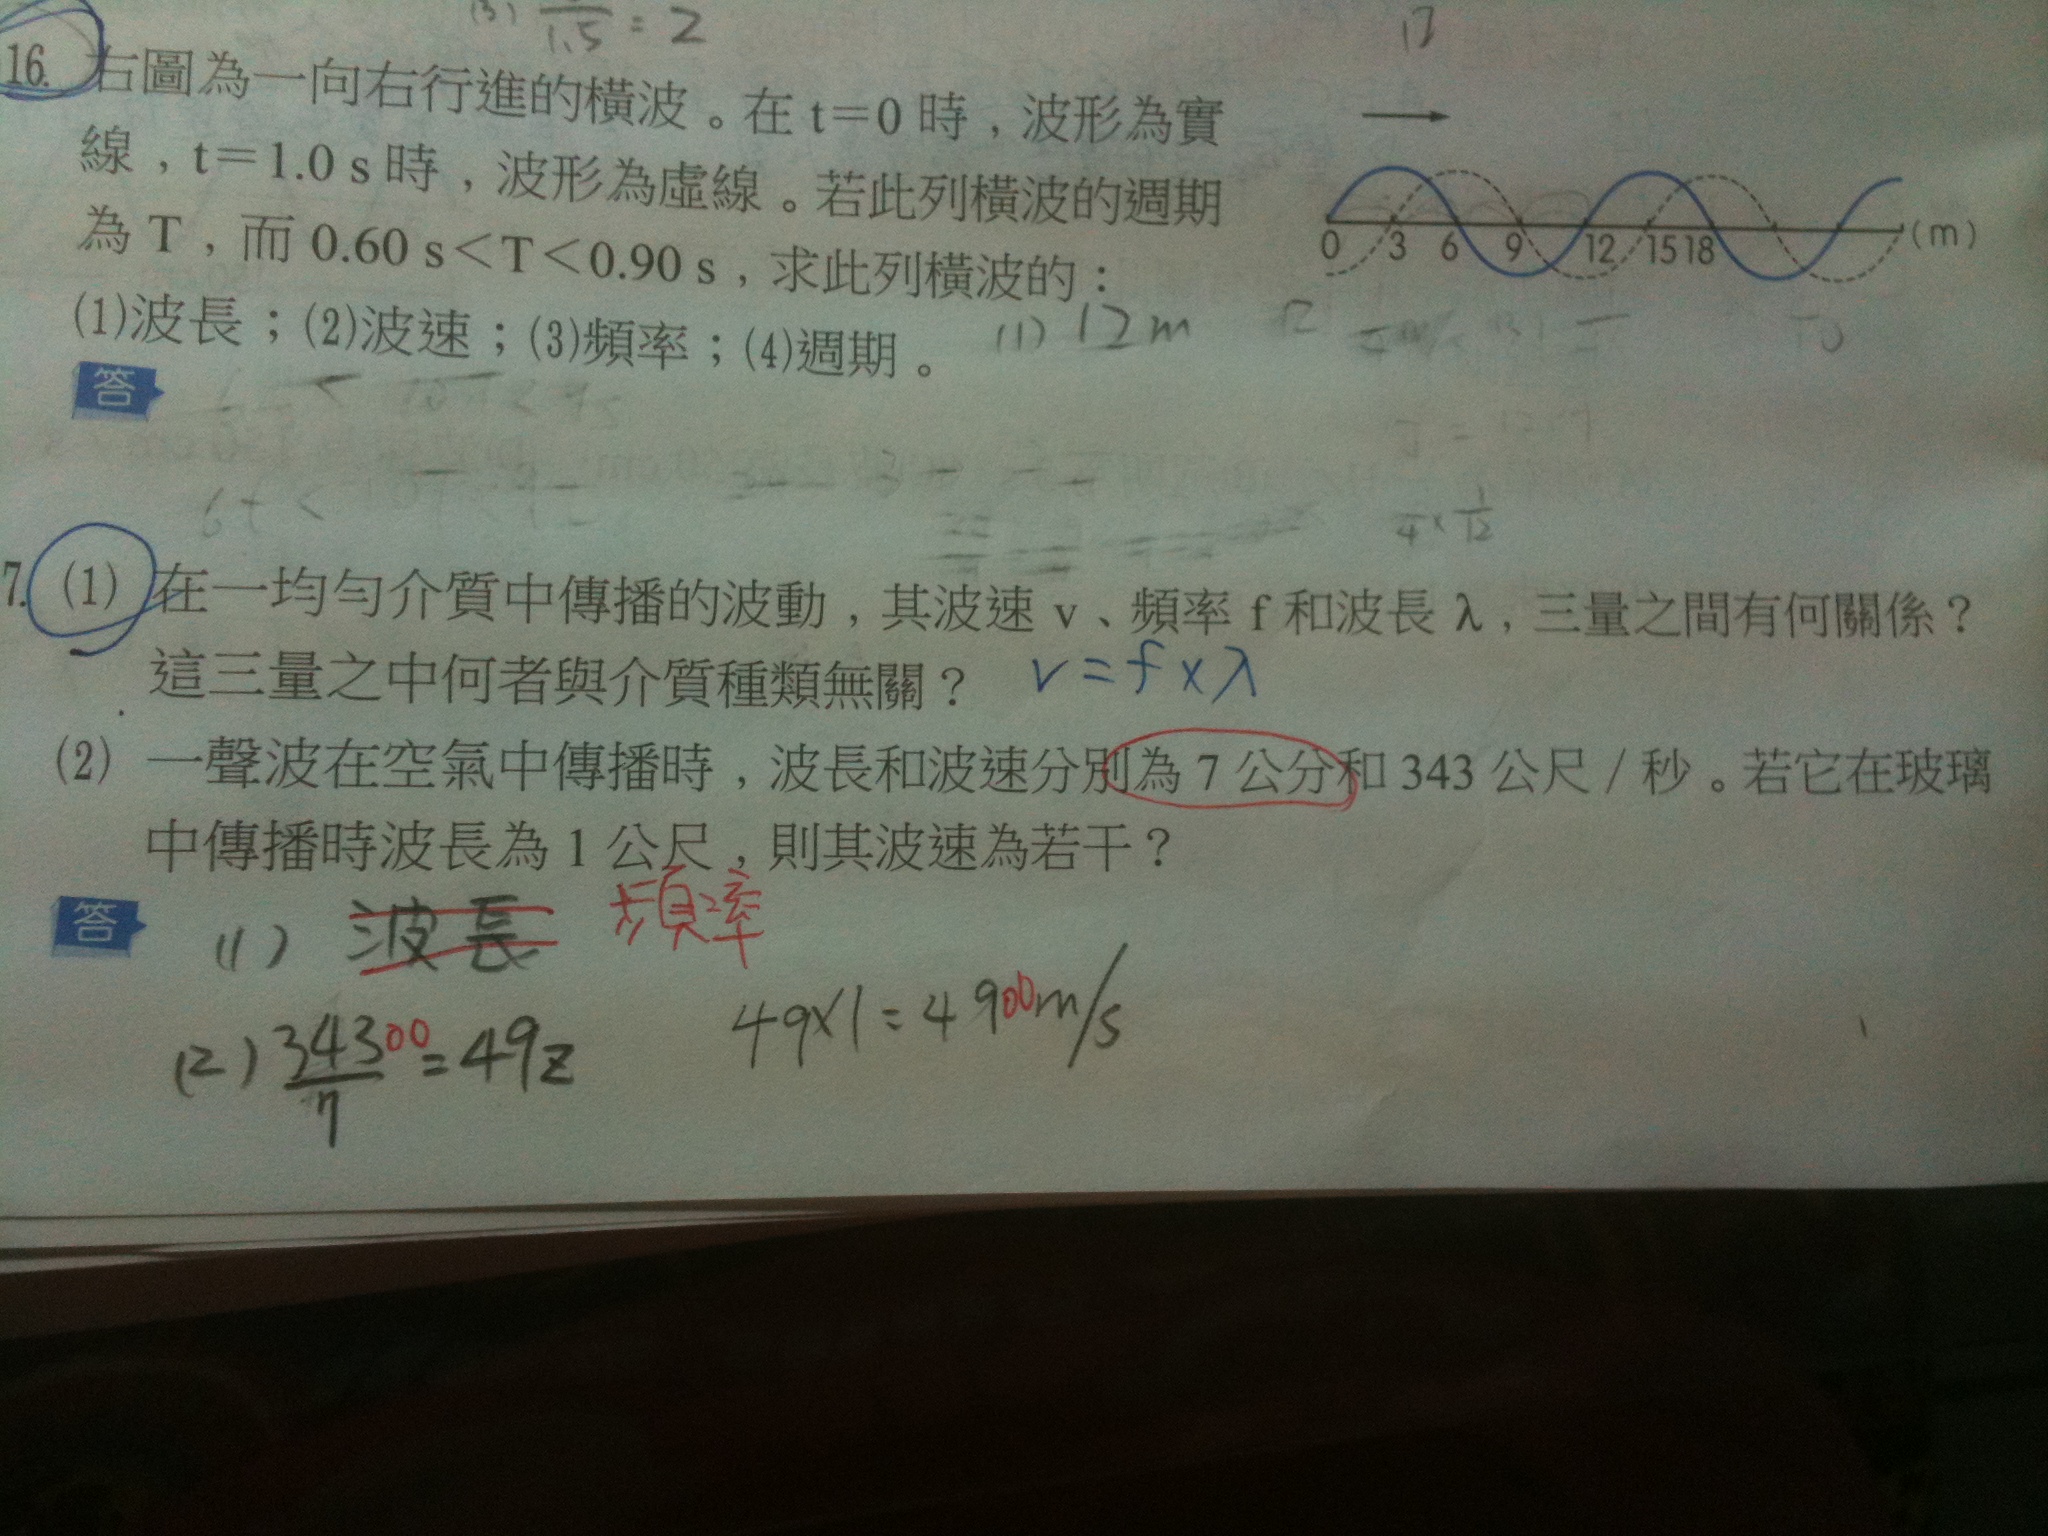 (3) 1.5 = 2
17
16. 右圖為一向右行進的橫波。在 t＝0 時，波形為實
線，t＝1.0 s 時，波形為虛線。若此列橫波的週期
為 T，而 0.60 s＜T＜0.90 s，求此列橫波的：
(1)波長；(2)波速；(3)頻率；(4)週期。 (1) 12m
0 3 6 9 12 15 18 (m)
答
1/4 × 1/12
7. (1) 在一均勻介質中傳播的波動，其波速 v、頻率 f 和波長 λ，三量之間有何關係？
這三量之中何者與介質種類無關？ v = f × λ
(2) 一聲波在空氣中傳播時，波長和波速分別為 7 公分和 343 公尺／秒。若它在玻璃
中傳播時波長為 1 公尺，則其波速為若干？
答 (1) 波長 頻率
(2) 34300/7 = 49z 49×1 = 4900m/s